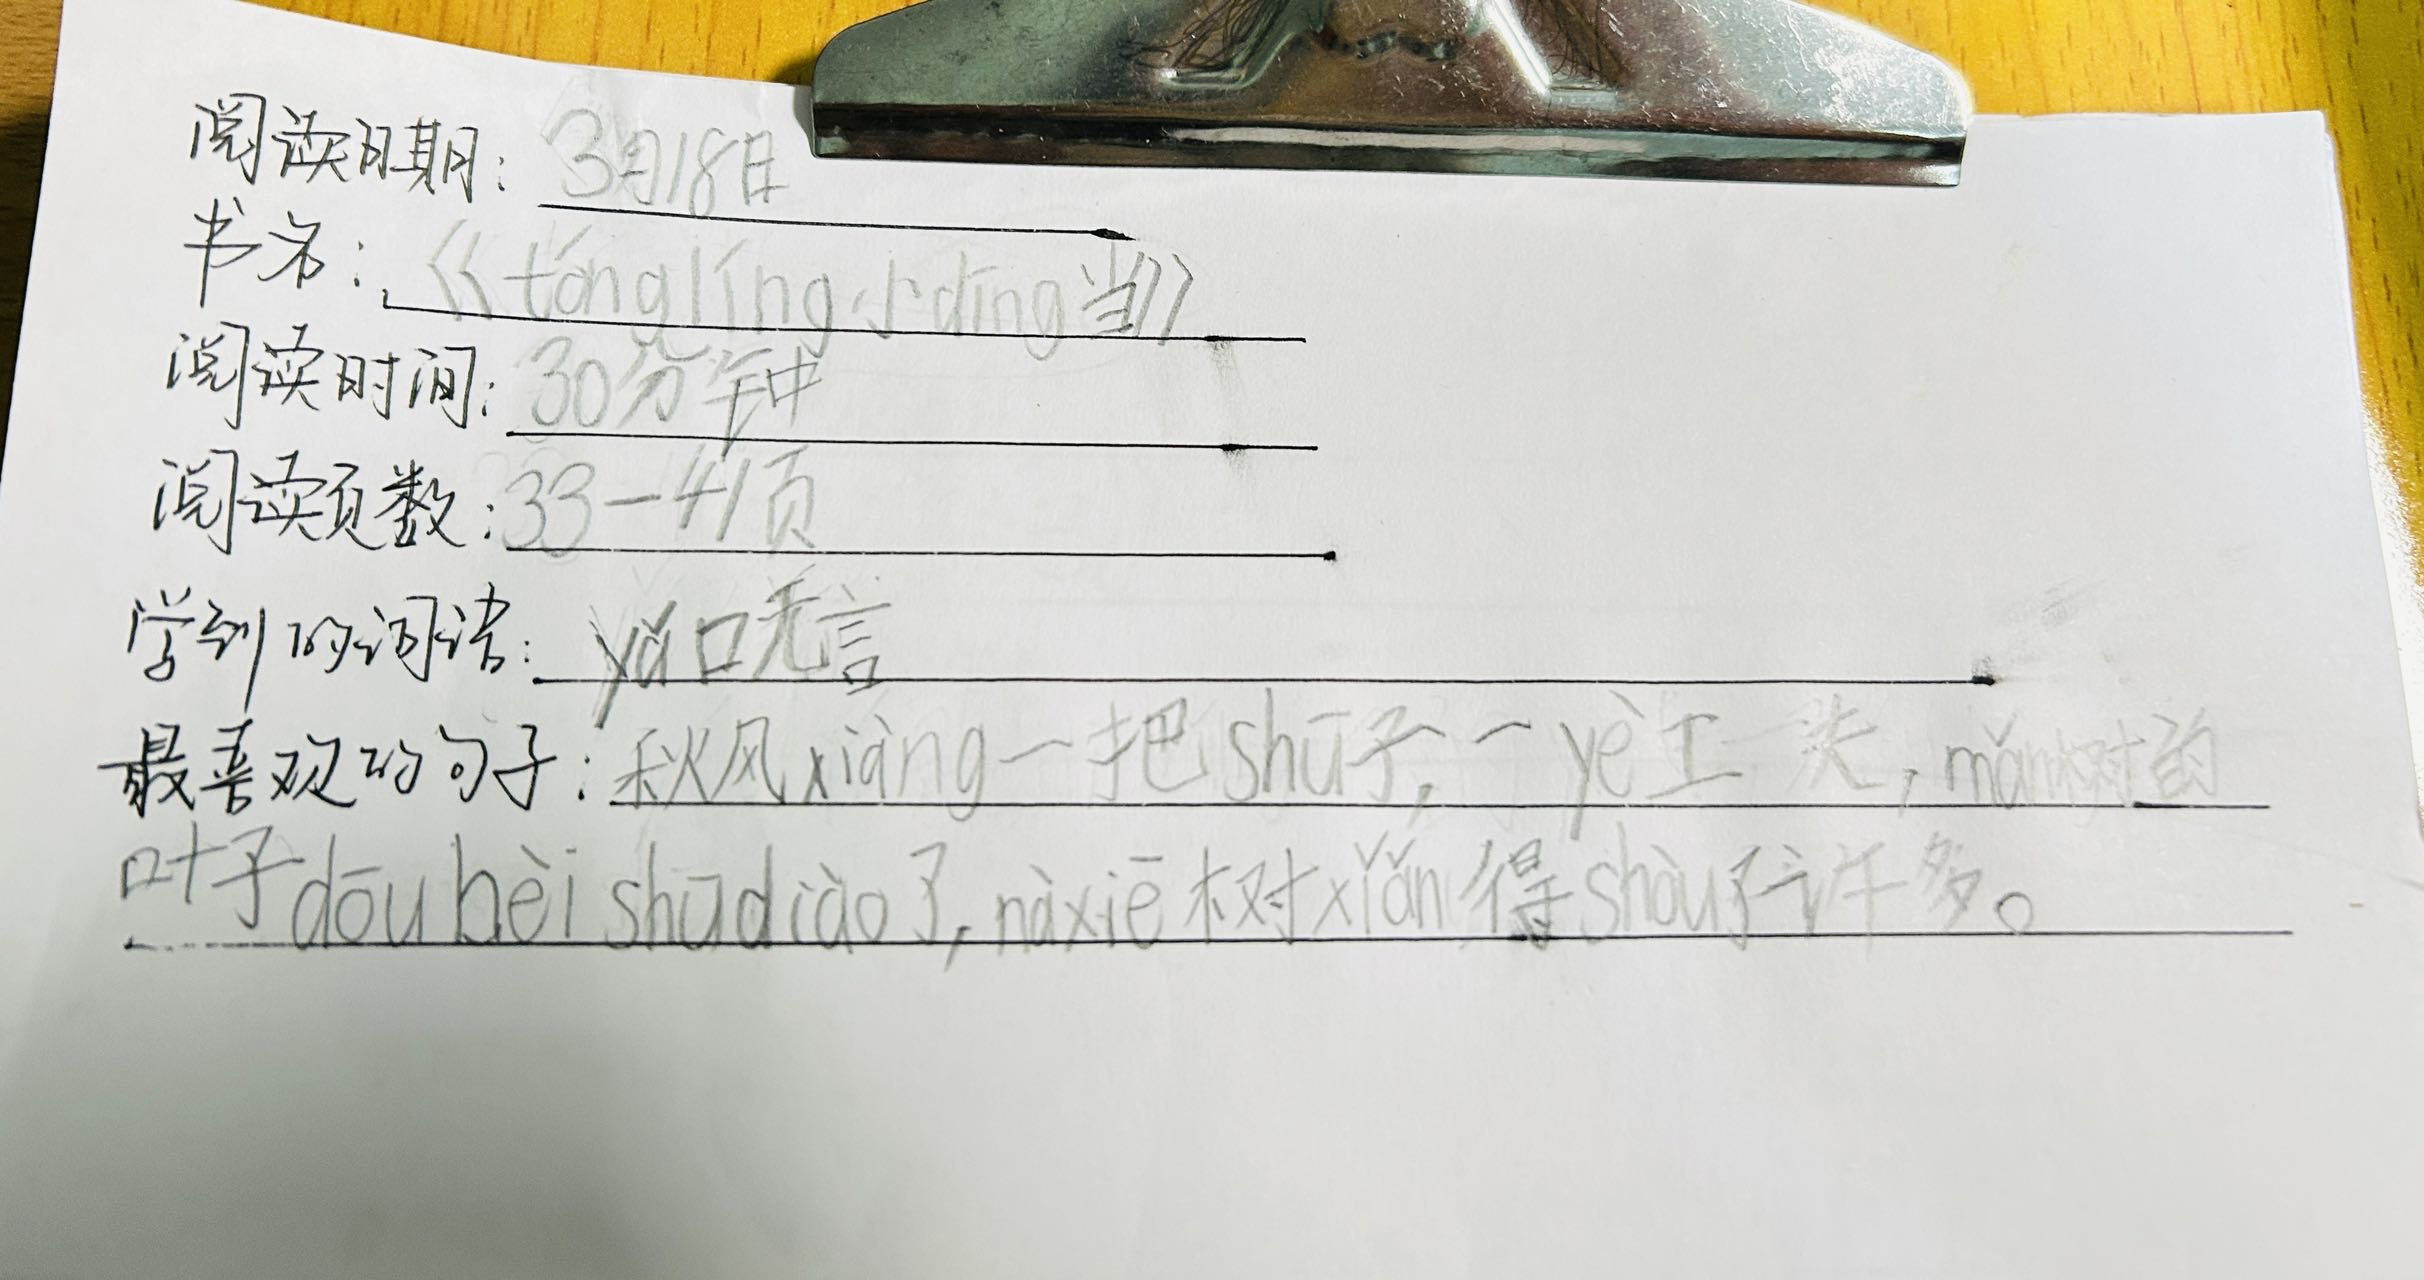 阅读日期：3月18日
书名：《tónglíng小dīng当》
阅读时间：30分钟
阅读页数：33－41页
学到的词语：yǎ口无言
最喜欢的句子：秋风xiàng一把shū子，一yè工夫，mǎn树的
叶子dōu bèi shūdiào了，nàxiē树xiǎn得shòu了许多。